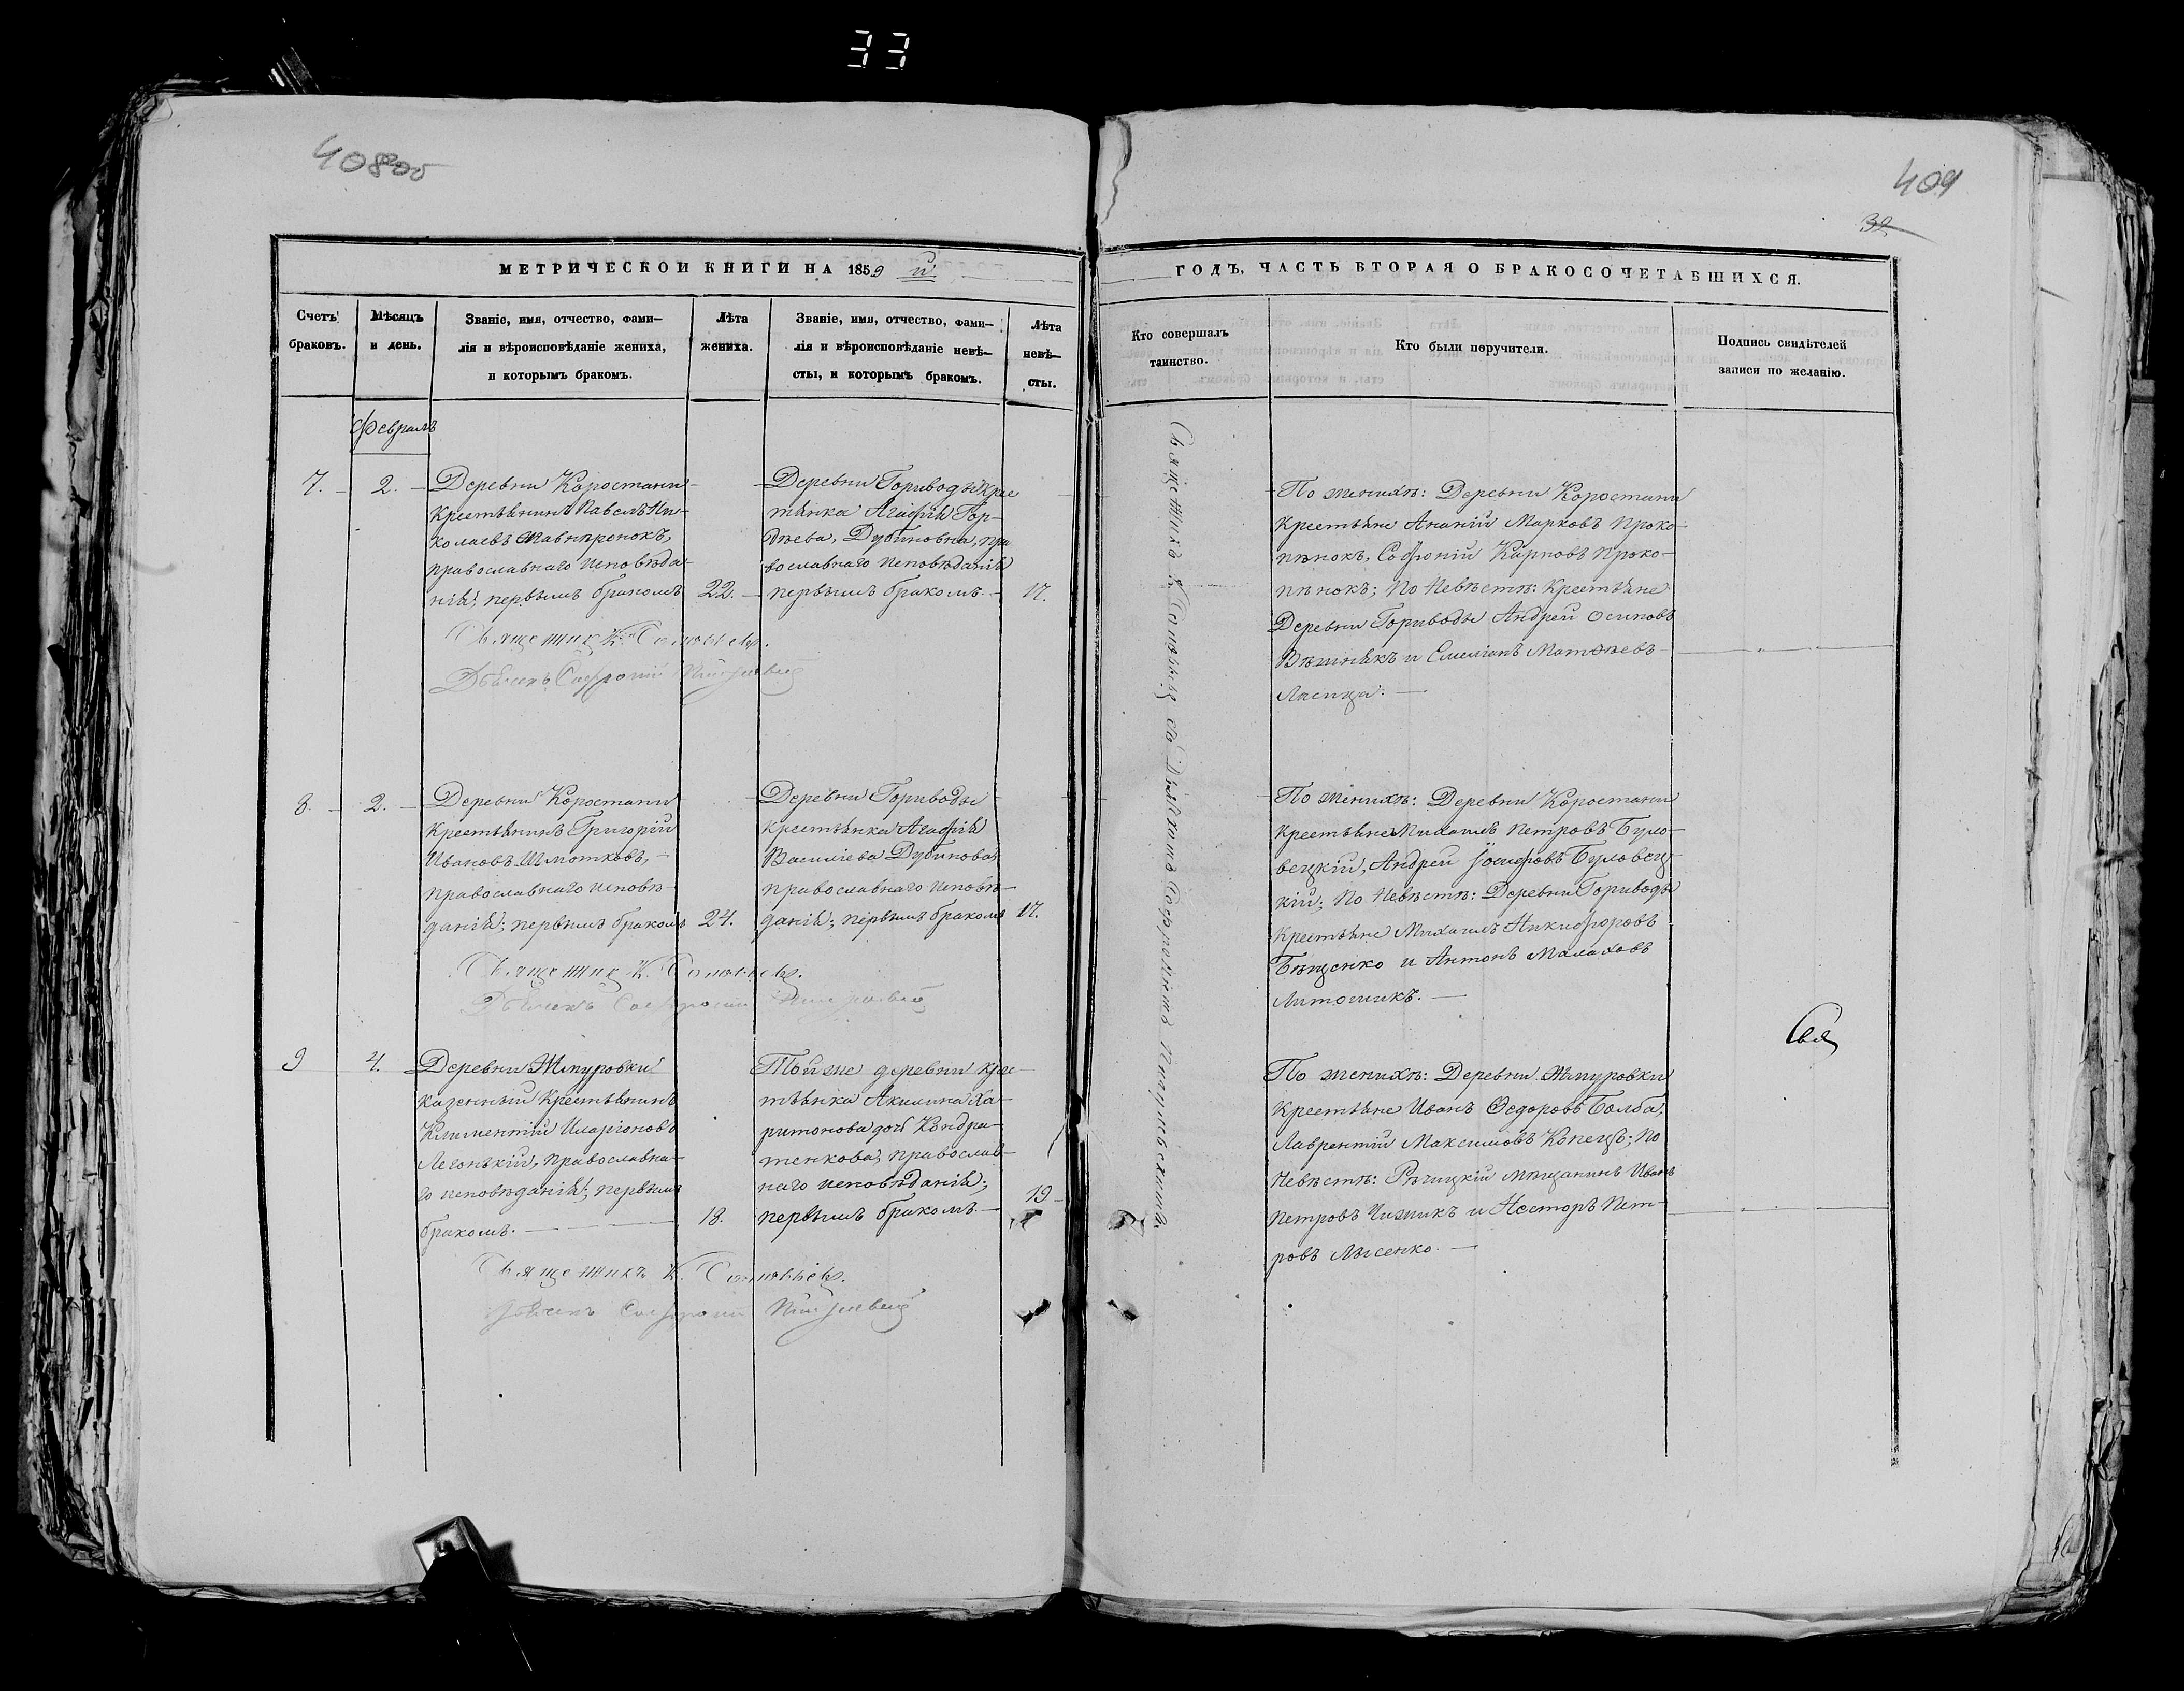 33
408об
409
32
МЕТРИЧЕСКОЙ КНИГИ НА 1859 й
ГОДЪ, ЧАСТЬ ВТОРАЯ О БРАКОСОЧЕТАВШИХСЯ.
Счетъ
браковъ.
Мѣсяцъ
и день.
Званіе, имя, отчество, фами–
лія и вѣроисповѣданіе жениха,
и которымъ бракомъ.
Лѣта
жениха.
Званіе, имя, отчество, фами–
лія и вѣроисповѣданіе невѣ–
сты, и которымъ бракомъ.
Лѣта
невѣ–
сты.
Кто совершалъ
таинство.
Кто были поручители.
Подпись свидѣтелей
записи по желанію.
Февраль
7.
2.
Деревни Коростани
Крестьянинъ Павелъ Ни-
колаевъ
православнаго исповѣда-
нія; первымъ бракомъ
22.
ДеревниТориводы Крес
тьянка Агафія Гор-
дѣева, Дубиновна, пра
вославнаго исповѣданія
первымъ бракомъ.
17.
Священникъ К. Соловьевъ.
Дьячекъ Софроній
По женихѣ: Деревни Коростани
Крестьяне Ананій Марковъ Проко-
пѣнокъ, Софроній Карповъ Проко-
пѣнокъ; По Невѣстѣ: Крестьяне
Деревни Гориводы Андрей Осиповъ
и Емеліанъ Матѳѣевъ
Лисица.
8.
2.
Деревни Коростани
Крестьянинъ Григорій
Ивановъ Шмотковъ,
православнаго исповѣ-
данія; первымъ бракомъ
24.
Деревни Гориводы
Крестьянка Агафія
Василіева Дубинова,
православнаго исповѣ-
данія; первымъ бракомъ
17.
Священник К. Соловьевъ.
Дьячекъ Софроній
По женихѣ: Деревни Коростани
Крестьяне Михаилъ Петровъ Було-
вецкій, Андрей Іосифовъ Буловец-
кій; По Невѣстѣ: Деревни Гориводы
Крестьяне Михаилъ Никифоровъ
Бѣценко и Антонъ Малаховъ
Литошикъ.
9
4.
Деревни Жмуровки
казенный Крестьянинъ
Климентій Иларіоновъ
Легонькій, православна-
го исповѣданія; первымъ
бракомъ.
18.
Той же деревни крес
тьянка Акилина Ха-
ритонова дочь Кондра-
тенкова, православ-
наго исповѣданія;
первымъ бракомъ.
19
Священникъ К. Соловьевъ.
Дьячекъ Софроній
По женихѣ: Деревни Жмуровки
Крестьяне Иванъ Ѳедоровъ Болба,
Лаврентій Максимовъ Копецъ; По
Невѣстѣ: Рѣчицкій мѣщанинъ Иванъ
Петровъ Чижикъ и Несторъ Пет-
ровъ Лысенко.
Священникъ К. Соловьевъ съ Дьячкомъ Софроніемъ